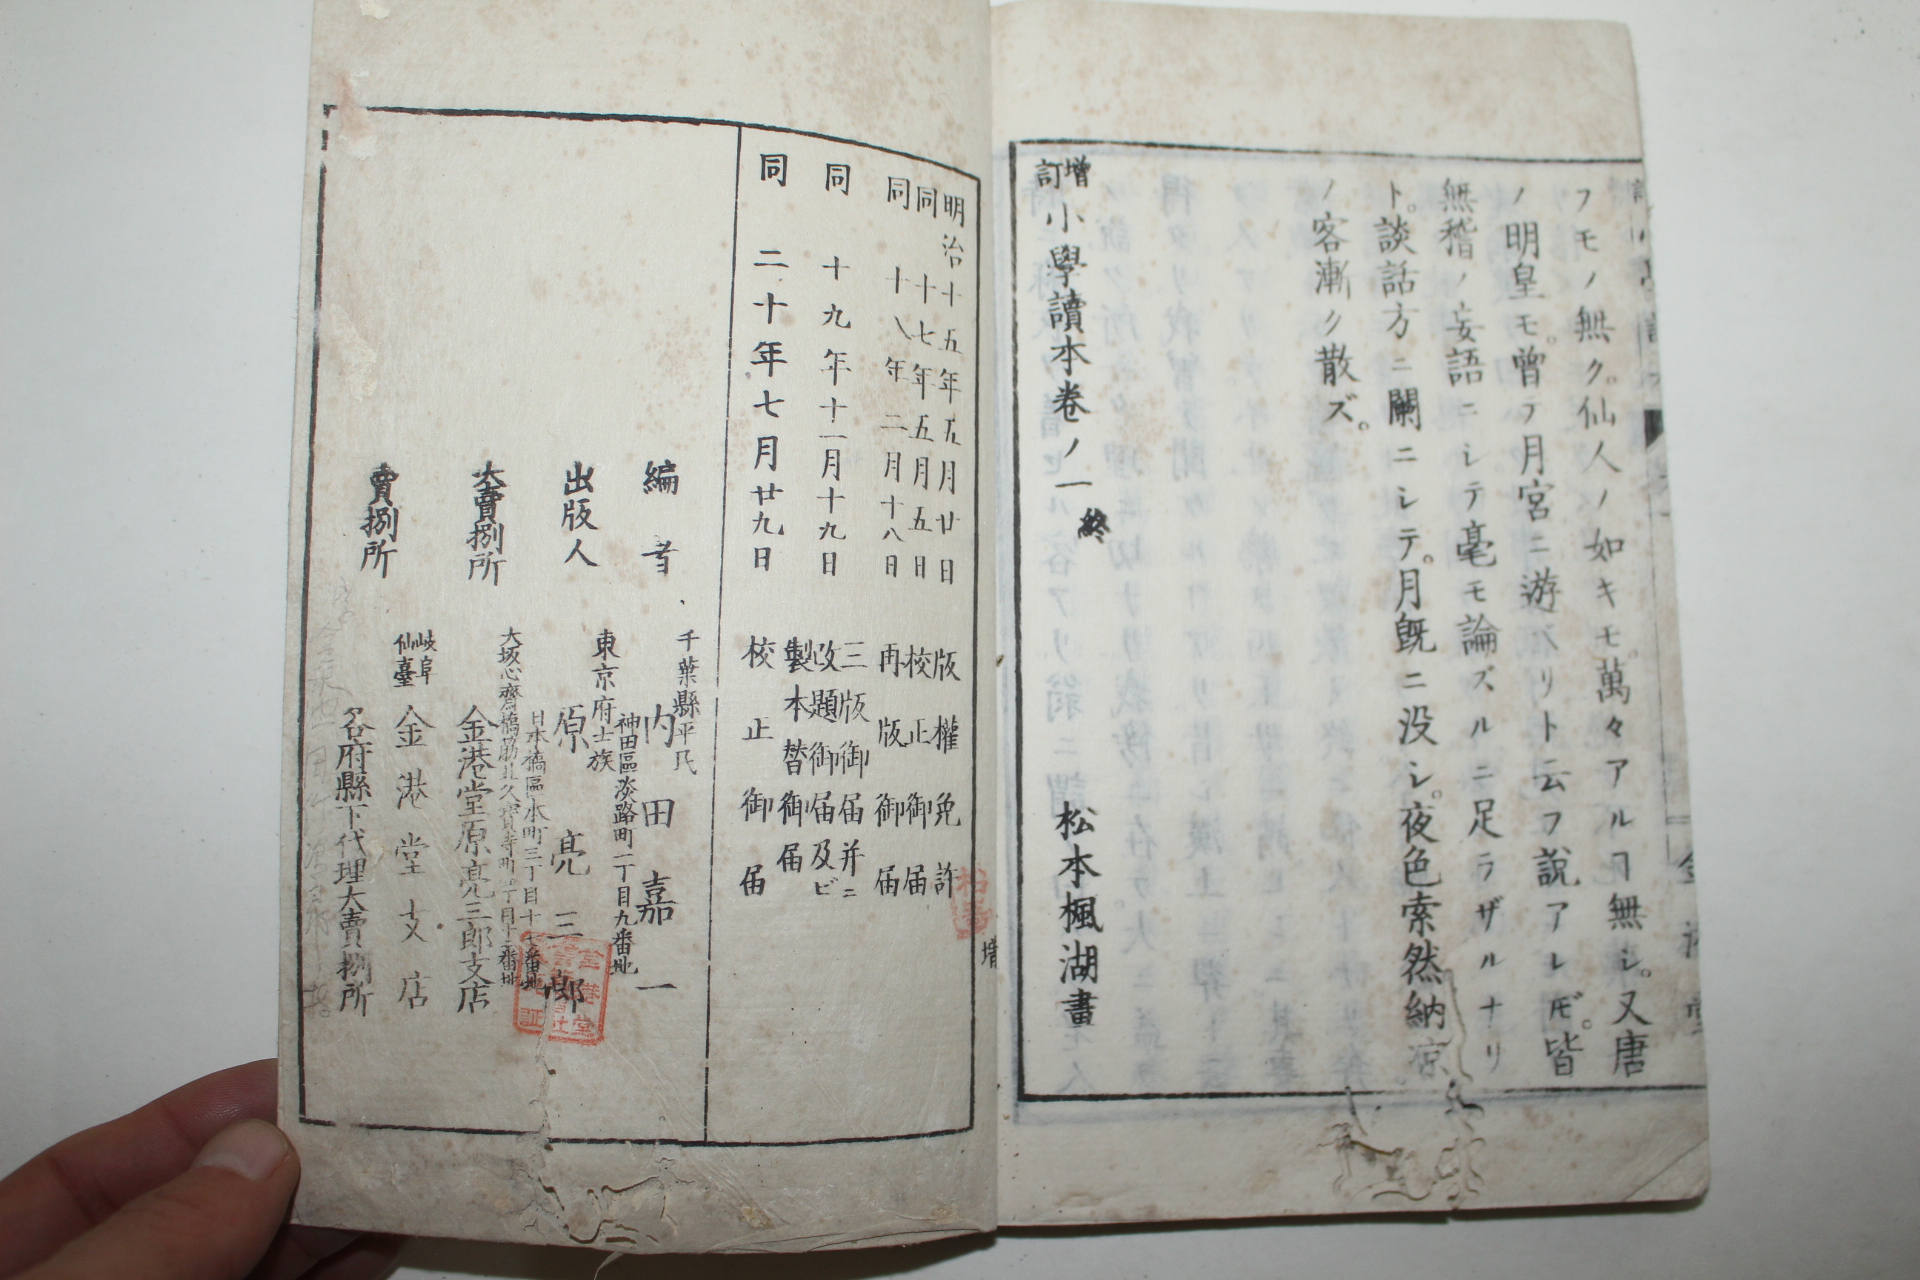 フモノ無ク。仙人ノ如キモ。萬々アルヿ無シ。又唐
ノ明皇モ。曾テ月宮ニ遊ベリト云フ説アレドモ。皆
無稽ノ妄語ニシテ毫モ論ズルニ足ラザルナリ
ト。談話方ニ闌ニシテ。月既ニ没シ。夜色索然納凉
ノ客漸ク散ズ。
增訂小學讀本卷ノ一終
松本楓湖畫
明治十五年五月廿日 版權免許
同十七年五月五日 校正御届
同十八年二月十八日 再版御届
同十九年十一月十九日 三版御届并ニ
改題御届及ビ
製本替御届
同二十年七月廿九日 校正御届
千葉縣平民
編者 内田嘉一
神田區淡路町二丁目九番地
東京府士族
出版人 原亮三郎
日本橋區本町三丁目十七番地
大坂心齋橋筋北久寳寺町四丁目十二番地
大賣捌所 金港堂原亮三郎支店
岐阜
仙臺
金港堂支店
賣捌所 各府縣下代理大賣捌所